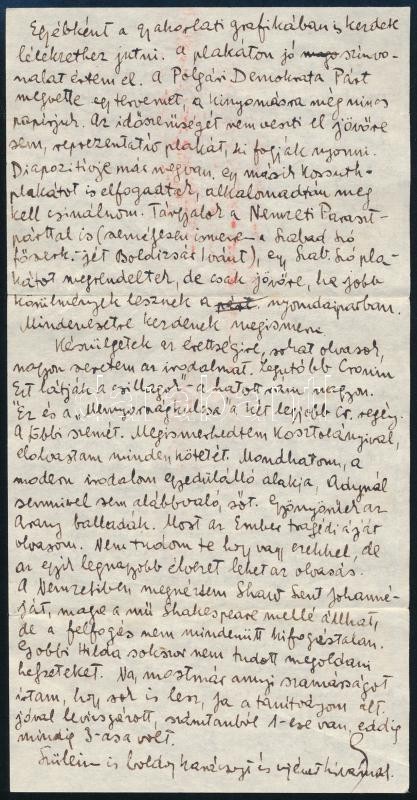 Egyébként a gyakorlati grafikában is kezdek
lélekzethez jutni. A plakáton jó színvo-
nalat értem el. A Polgári Demokrata Párt
megvette egy tervemet, a kinyomásra még nincs
papírjuk. Az időszerűségét nem veszti el jövőre
sem, reprezentatív plakát, ki fogják nyomni.
Diapozitívje már megvan, egy másik Kossuth-
plakátot is elfogadtak, alkalomadtán meg
kell csinálnom. Tárgyalok a Nemzeti Paraszt-
párttal is (személyesen ismerem a Szabad Szó
főszerk.-jét Boldizsár Ivánt), egy Szab. Szó pla-
kátot megrendeltek, de csak jövőre, ha jobb
körülmények lesznek a nyomdaiparban.
Mindenesetre kezdenek megismerni.
Készülgetek az érettségire, sokat olvasok,
nagyon szeretem az irodalmat. Legutóbb Cronin
"Ezt látják a csillagok"-a hatott rám nagyon.
Ez és a "Mennyország kulcsa" a két legjobb Cr. regény.
A többi szemét. Megismerkedtem Kosztolányival,
elolvastam minden kötetét. Mondhatom, a
modern irodalom egyedülálló alakja, Adynál
semmivel sem alábbvaló, sőt. Gyönyörűek az
Arany balladák. Most az Ember tragédiáját
olvasom. Nem tudom te hogy vagy ezekkel, de
az egyik legnagyobb élvezet lehet az olvasás.
A Nemzetiben megnéztem Shaw Szent Johanná-
ját, maga a mű Shakespeare mellé állhat,
de a felfogás nem mindenütt kifogástalan.
Gobbi Hilda sokszor nem tudott megoldani
helyzeteket. Na, most már annyi szamárságot
írtam, hogy sok is lesz, ja a tanítványom ált.
jóval levizsgázott, számtanból 1-ese van, eddig
mindig 3-asa volt.
Szüleim is boldog karácsonyt és újévet kívánnak.